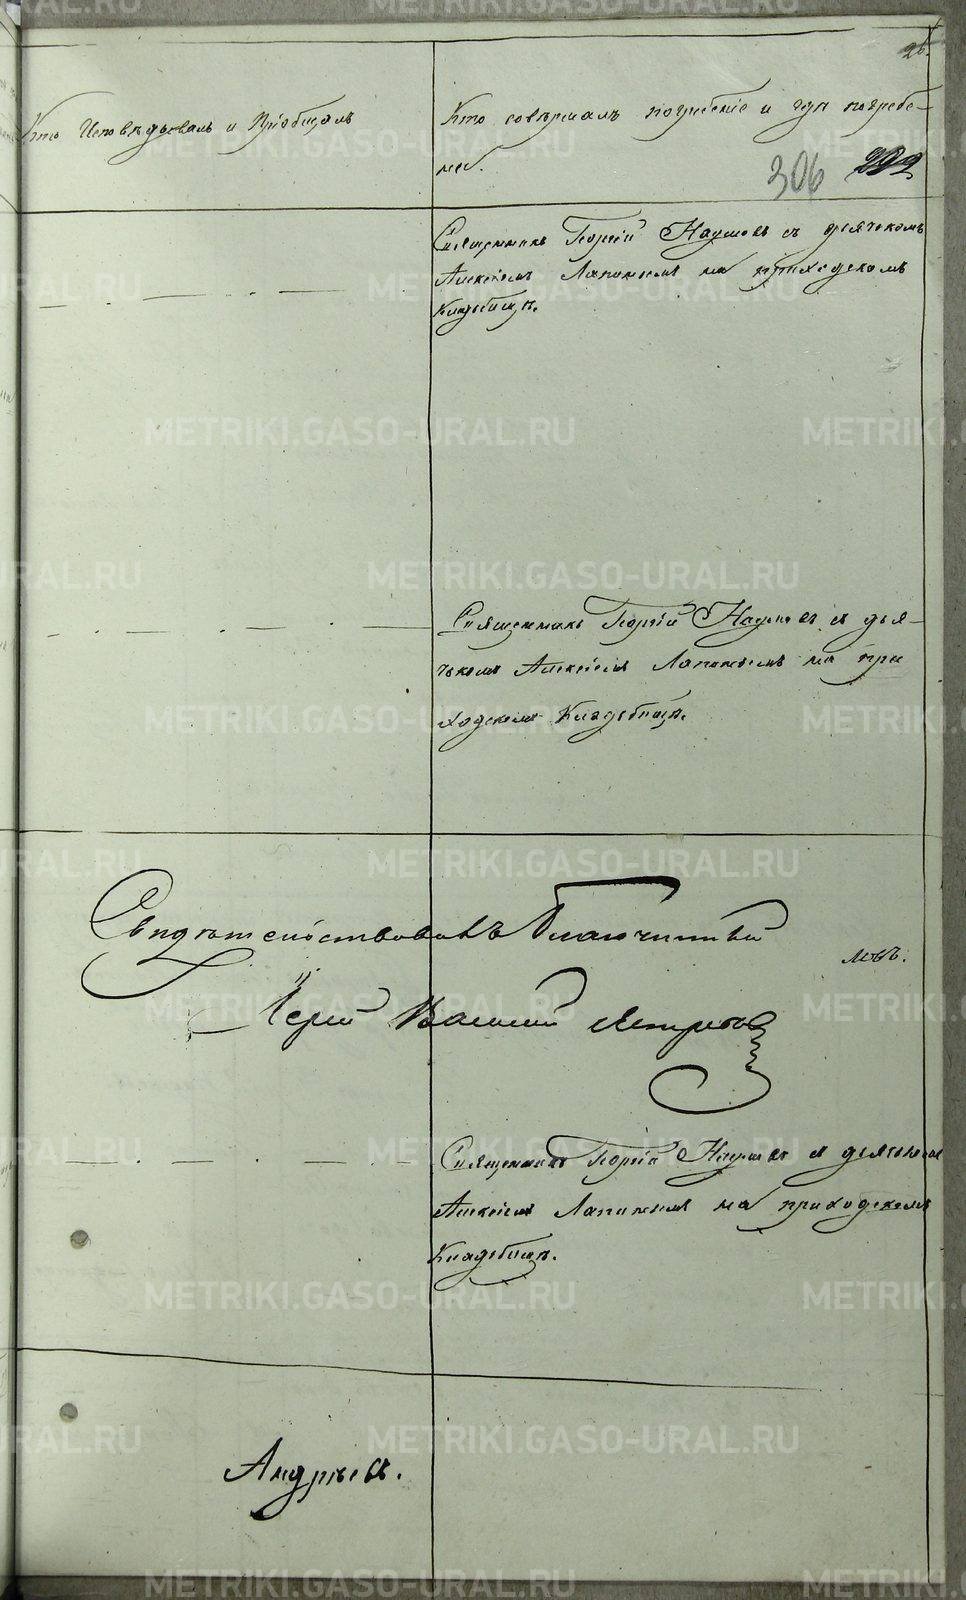 26.
Кто Исповѣдывалъ и Пріобщалъ
Кто совершалъ погребеніе и гдѣ погребе-
ны.
306 292
Священникъ Георгій Наумовъ съ дьячкомъ
Алексіемъ Лапинымъ на приходскомъ
Кладбищѣ.
Священникъ Георгій Наумовъ и дья-
чькомъ Алексіемъ Лапинымъ на при
ходскомъ Кладбищѣ.
Свидѣтельствовалъ Благочинный
мовъ.
Іерей Василій
Священникъ Георгій Наумовъ и дьячькомъ
Алексіемъ Лапинымъ на приходскомъ
Кладбищѣ.
Андрѣевъ.
METRIKI.GASO-URAL.RU